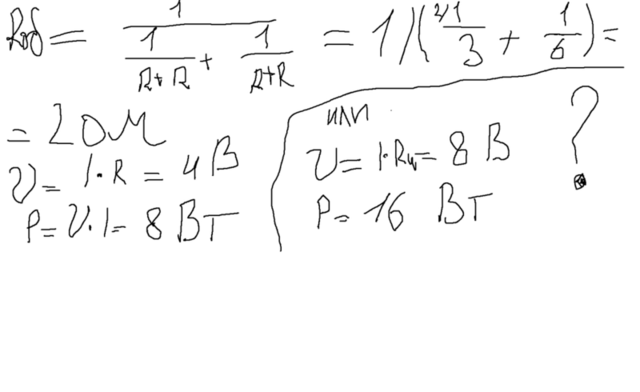 Rоб = 1 / (1/(R+R) + 1/(R+R)) = 1/(²⁾1/3 + 1/6) =
= 2 ОМ
U = I·R = 4 В
P = U·I = 8 ВТ
или
U = I·R₄ = 8 В
P = 16 ВТ
?